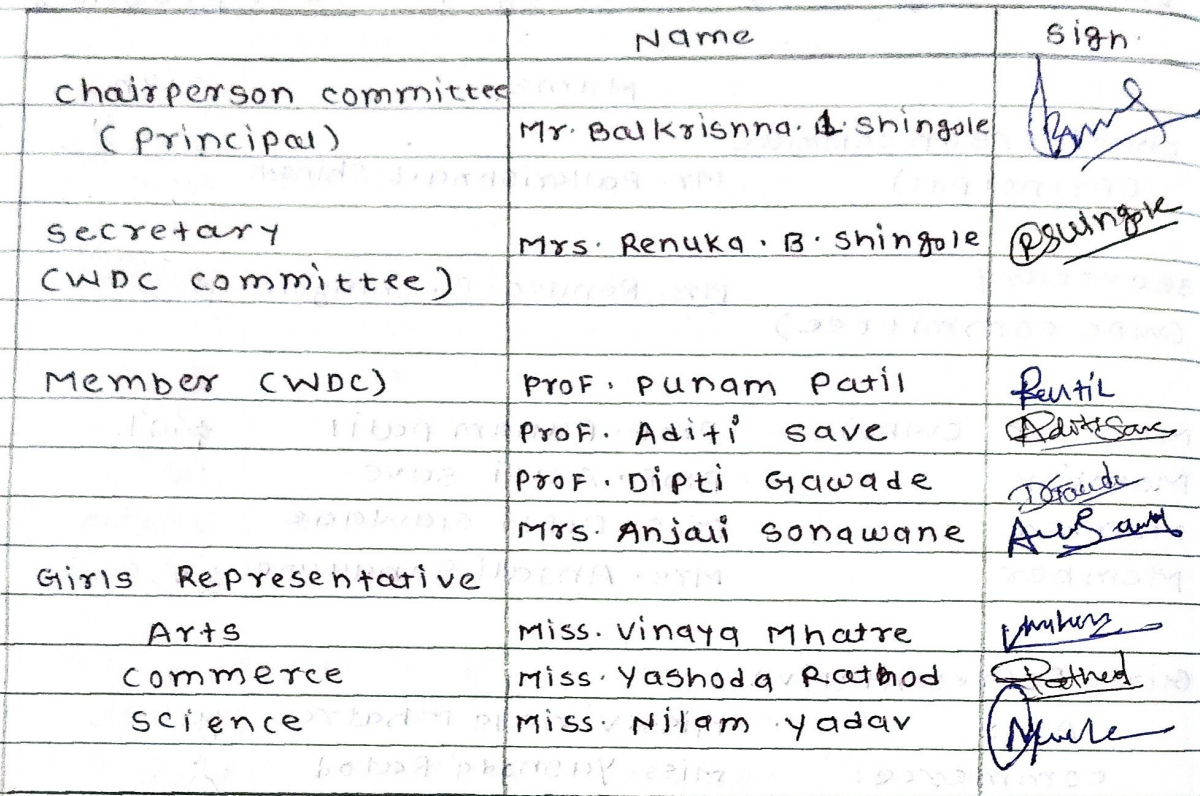 Name Sign.
Chairperson committee
(Principal) Mr. Balkrishna. L. Shingole
Secretary Mrs. Renuka. B. Shingole
(WDC committee)
Member (WDC) Prof. Punam Patil
Prof. Aditi Save
Prof. Dipti Gawade
Mrs. Anjali Sonawane
Girls Representative
Arts Miss. Vinaya Mhatre
Commerce Miss. Yashoda Rathod
Science Miss. Nilam Yadav